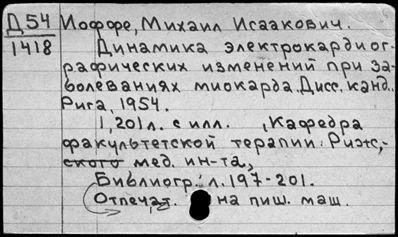 Д54 Иоффе, Михаил Исаакович.
1418 Динамика электрокардиог-
рафических изменений при за-
болеваниях миокарда. Дисс. канд..
Рига, 1954.
1, 201 л. с илл. , Кафедра
факультетской терапии. Рижс,-
ского мед. ин-та,
Библиогр: л. 197-201.
Отпечат. на пиш. маш.